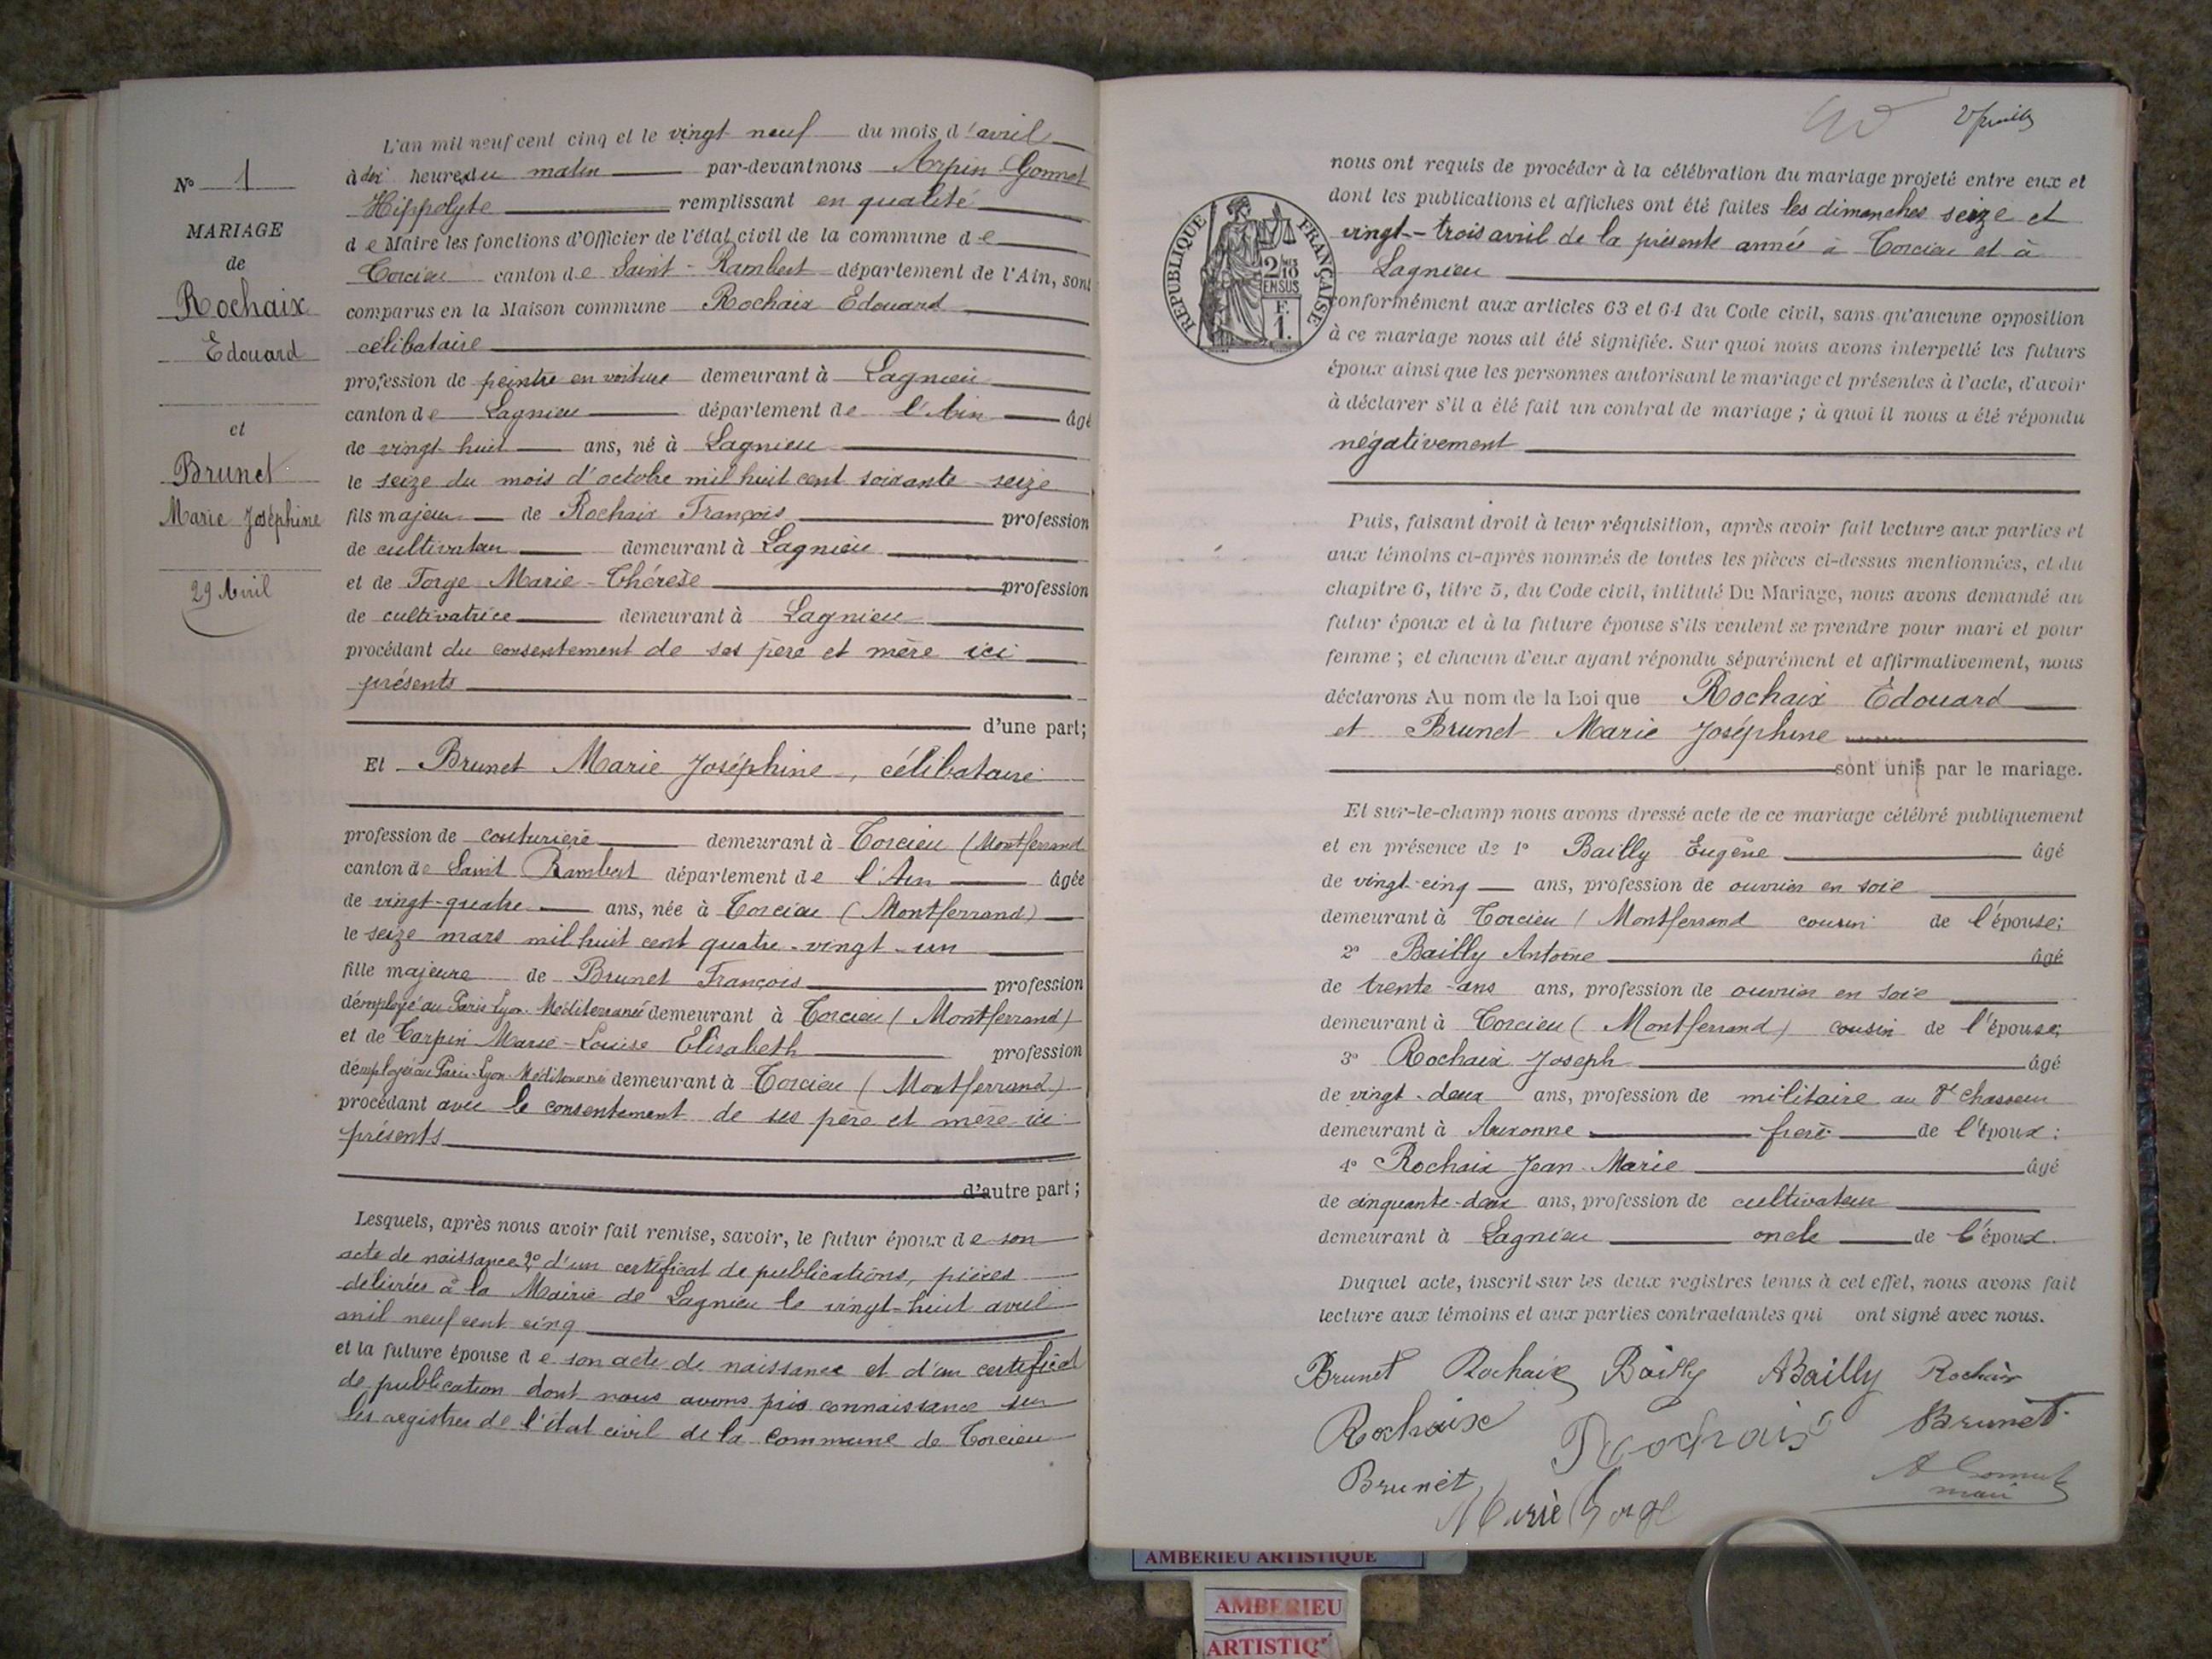 N° 1
MARIAGE
de
Rochaix
Edouard
et
Brunet
Marie Joséphine
29 Avril
L'an mil neuf cent cinq et le vingt neuf du mois d'avril
à dix heures du matin par-devant nous Arpin Gonnet
Hippolyte remplissant en qualité
de Maire les fonctions d'Officier de l'état civil de la commune de
Torcieu canton de Saint-Rambert département de l'Ain, sont
comparus en la Maison commune Rochaix Edouard
célibataire
profession de peintre en voiture demeurant à Lagnieu
canton de Lagnieu département de l'Ain âgé
de vingt-huit ans, né à Lagnieu
le seize du mois d'octobre mil huit cent soixante-seize
fils majeur de Rochaix François profession
de cultivateur demeurant à Lagnieu
et de Forge Marie-Thérèse profession
de cultivatrice demeurant à Lagnieu
procédant du consentement de ses père et mère ici
présents
d'une part;
Et Brunet Marie Joséphine, célibataire
profession de couturière demeurant à Torcieu (Montferrand
canton de Saint Rambert département de l'Ain âgée
de vingt-quatre ans, née à Torcieu (Montferrand)
le seize mars mil huit cent quatre-vingt-un
fille majeure de Brunet François profession
d'employé au Paris-Lyon-Méditerranée demeurant à Torcieu (Montferrand)
et de Carpin Marie-Louise Elisabeth profession
d'employée au Paris-Lyon-Méditerranée demeurant à Torcieu (Montferrand)
procédant avec le consentement de ses père et mère ici
présents
d'autre part;
Lesquels, après nous avoir fait remise, savoir, le futur époux de son
acte de naissance 2° d'un certificat de publications, pièces
délivrées à la Mairie de Lagnieu le vingt-huit avril
mil neuf cent cinq
et la future épouse de son acte de naissance et d'un certificat
de publication dont nous avons pris connaissance sur
les registres de l'état civil de la commune de Torcieu
nous ont requis de procéder à la célébration du mariage projeté entre eux et
dont les publications et affiches ont été faites les dimanches seize et
vingt-trois avril de la présente année à Torcieu et à
Lagnieu
RÉPUBLIQUE FRANÇAISE
2/10 MES
EN SUS
F.
1.
conformément aux articles 63 et 64 du Code civil, sans qu'aucune opposition
à ce mariage nous ait été signifiée. Sur quoi nous avons interpellé les futurs
époux ainsi que les personnes autorisant le mariage et présentes à l'acte, d'avoir
à déclarer s'il a été fait un contrat de mariage; à quoi il nous a été répondu
négativement
Puis, faisant droit à leur réquisition, après avoir fait lecture aux parties et
aux témoins ci-après nommés de toutes les pièces ci-dessus mentionnées, et du
chapitre 6, titre 5, du Code civil, intitulé Du Mariage, nous avons demandé au
futur époux et à la future épouse s'ils veulent se prendre pour mari et pour
femme; et chacun d'eux ayant répondu séparément et affirmativement, nous
déclarons Au nom de la Loi que Rochaix Édouard
et Brunet Marie Joséphine
sont unis par le mariage.
Et sur-le-champ nous avons dressé acte de ce mariage célébré publiquement
et en présence de 1° Bailly Eugène âgé
de vingt-cinq ans, profession de ouvrier en soie
demeurant à Torcieu (Montferrand cousin de l'épouse;
2° Bailly Antoine âgé
de trente-ans ans, profession de ouvrier en soie
demeurant à Torcieu (Montferrand) cousin de l'épouse;
3° Rochaix Joseph âgé
de vingt-deux ans, profession de militaire au 8e Chasseur
demeurant à Auxonne frère de l'époux;
4° Rochaix Jean-Marie âgé
de cinquante-deux ans, profession de cultivateur
demeurant à Lagnieu oncle de l'époux.
Duquel acte, inscrit sur les deux registres tenus à cet effet, nous avons fait
lecture aux témoins et aux parties contractantes qui ont signé avec nous.
Brunet Rochaix Bailly ABailly Rochaix
Rochaix Rochaix Brunet
Brunet Marie Forge
A Gonnet
maire
AMBERIEU ARTISTIQUE
AMBERIEU
ARTISTIQ